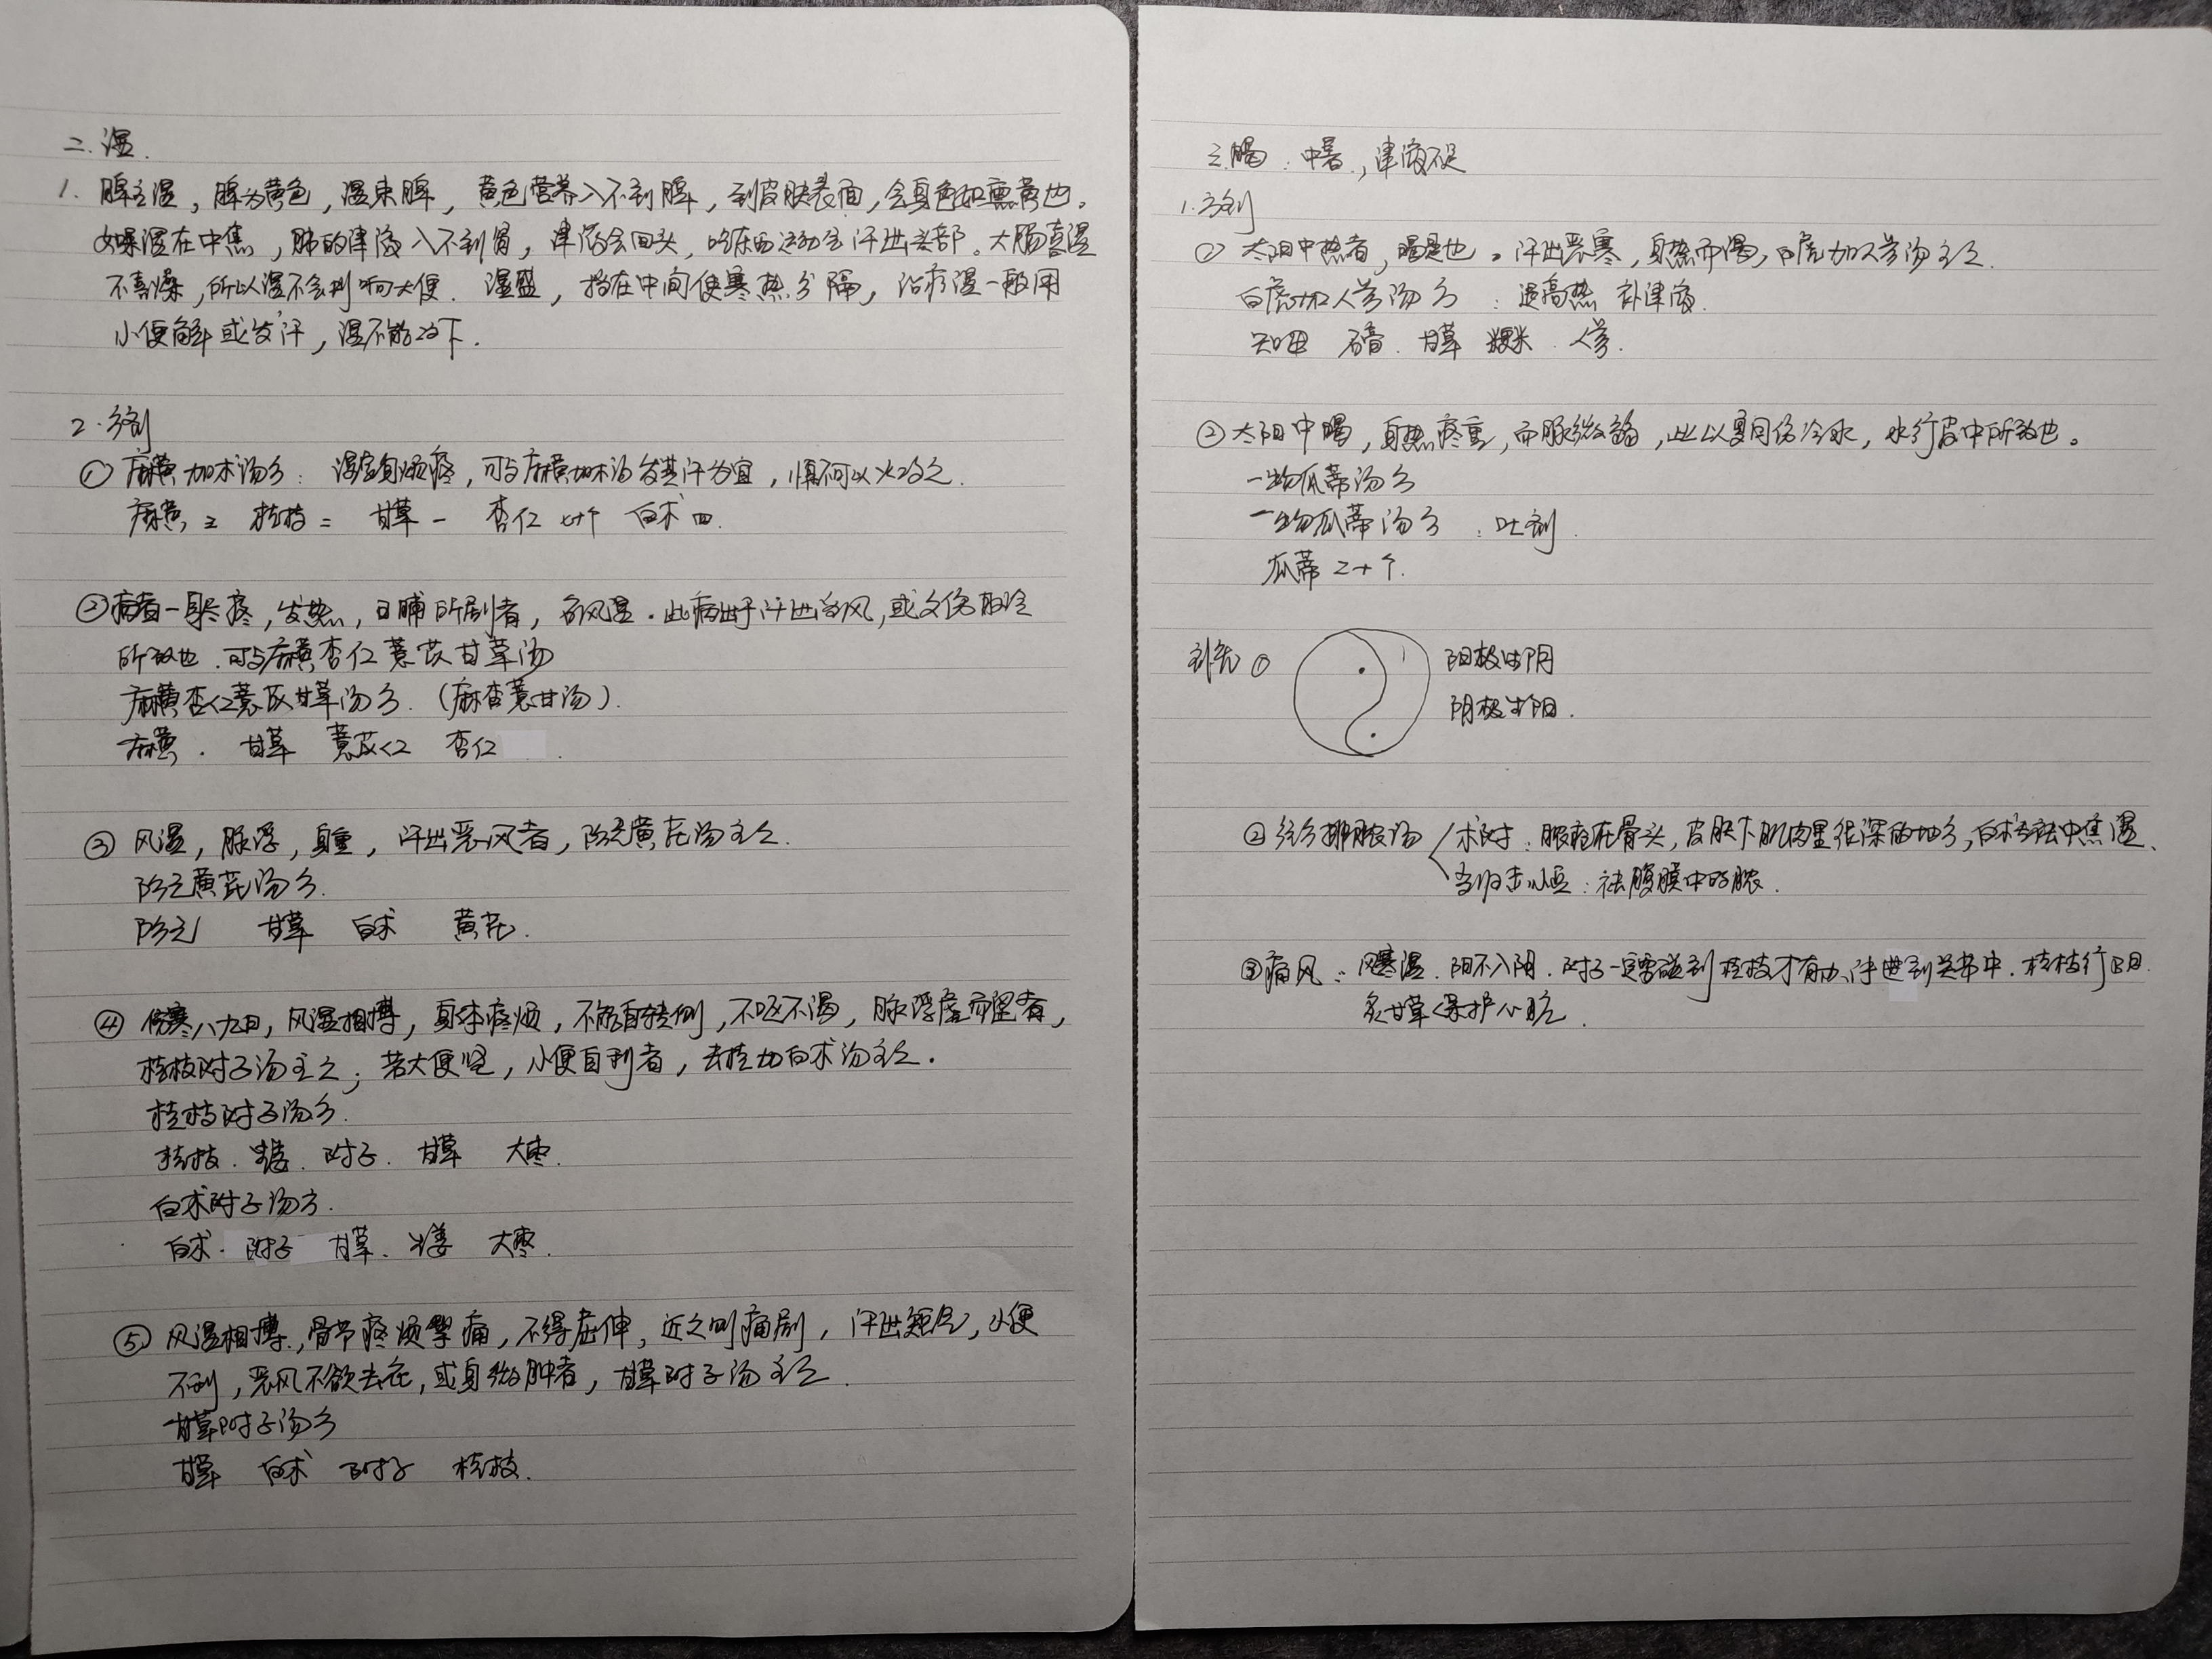 二.湿.
1. 脾主湿，脾为黄色，湿束脾，黄色营养入不到脾，到皮肤表面，会身色如熏黄也。
如果湿在中焦，肺的津液入不到胃，津液会回头，吃东西运动会汗出头部。大肠喜湿
不喜燥，所以湿不会影响大便. 湿盛，挡在中间使寒热分隔，治疗湿一般用
小便解或发汗，湿不能攻下.
2.方剂
① 麻黄加术汤方：湿家身烦疼，可与麻黄加术汤发其汗为宜，慎不可以火攻之.
麻黄三 桂枝二 甘草一 杏仁七十个 白术四.
②病者一身尽疼，发热，日晡所剧者，名风湿.此病出于汗出当风，或久伤取冷
所致也.可与麻黄杏仁薏苡甘草汤
麻黄杏仁薏苡甘草汤方.(麻杏薏甘汤).
麻黄. 甘草 薏苡仁 杏仁.
③ 风湿，脉浮，身重，汗出恶风者，防己黄芪汤主之.
防己黄芪汤方.
防己 甘草 白术 黄芪.
④ 伤寒八九日，风湿相搏，身体疼烦，不能自转侧，不呕不渴，脉浮虚而涩者，
桂枝附子汤主之；若大便坚，小便自利者，去桂加白术汤主之.
桂枝附子汤方.
桂枝.生姜.附子.甘草 大枣.
白术附子汤方.
白术.附子 甘草.生姜 大枣.
⑤ 风湿相搏，骨节疼烦掣痛，不得屈伸，近之则痛剧，汗出短气，小便
不利，恶风不欲去衣，或身微肿者，甘草附子汤主之.
甘草附子汤方
甘草 白术 附子 桂枝.
三.暍.中暑，津液不足
1.方剂
① 太阳中热者，暍是也。汗出恶寒，身热而渴，白虎加人参汤主之.
白虎加人参汤方：退高热 补津液.
知母 石膏.甘草 粳米.人参.
② 太阳中暍，身热疼重，而脉微弱，此以夏月伤冷水，水行皮中所致也。
一物瓜蒂汤方
一物瓜蒂汤方：吐剂.
瓜蒂二十个.
补充① 阳极生阴
阴极生阳.
② 经方排脓汤 术附：脓疮在骨头，皮肤下肌肉里很深的地方，白术专祛中焦湿、
当归赤小豆：祛腹膜中的脓.
③痛风：风寒湿.阳不入阴.附子一定要碰到桂枝才有力、汗进到关节中.桂枝行阳.
炙甘草保护心脏.